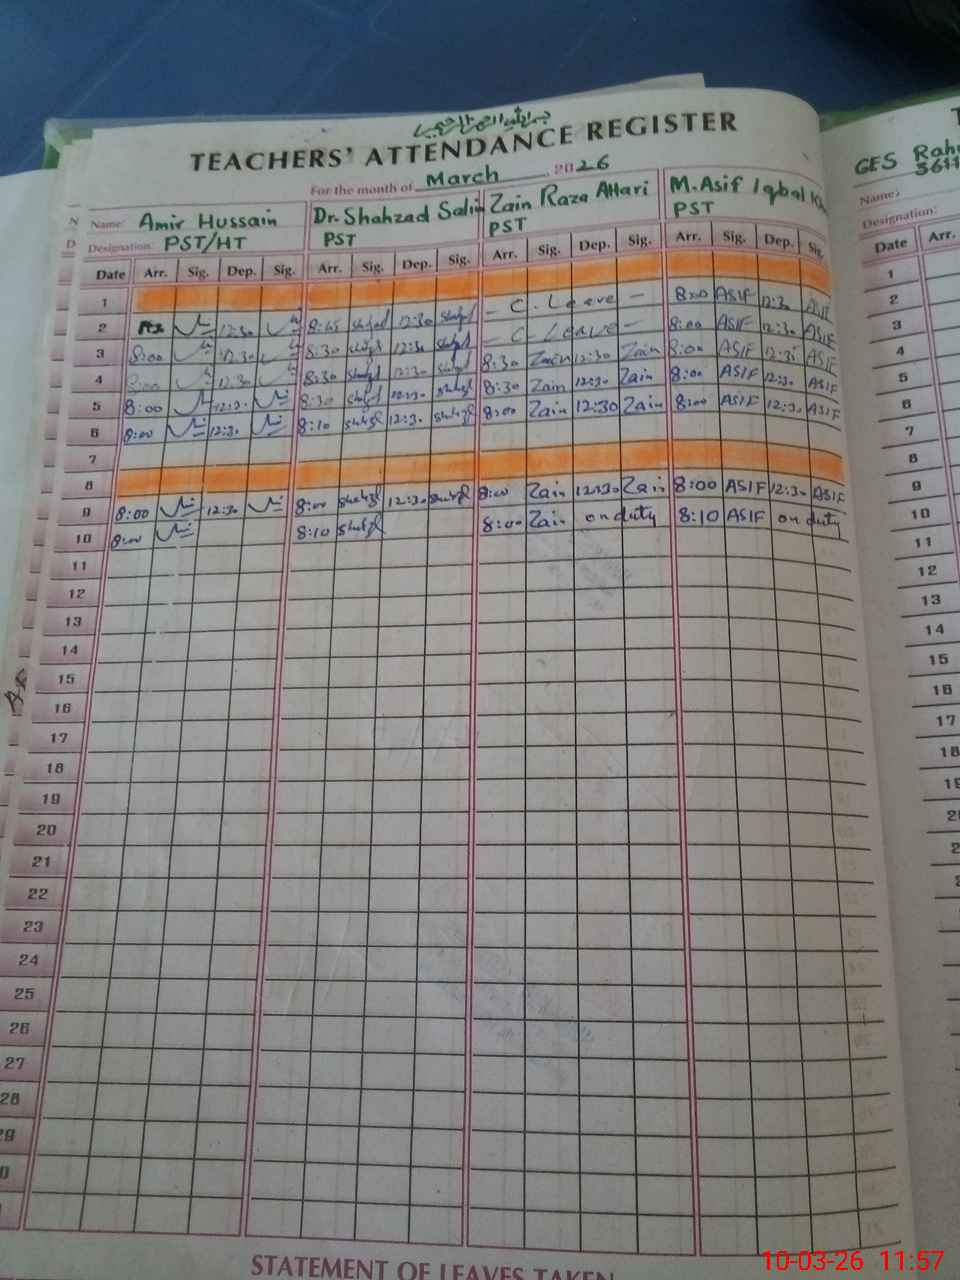 بسم اللہ الرحمن الرحیم
TEACHERS' ATTENDANCE REGISTER
For the month of March 2026
Name: Amir Hussain Dr. Shahzad Salim Zain Raza Attari M. Asif Iqbal
Designation: PST/HT PST PST PST
Date Arr. Sig. Dep. Sig. Arr. Sig. Dep. Sig. Arr. Sig. Dep. Sig. Arr. Sig. Dep. Sig.
1
2 12:30 8:45 12:30 - C. Leave - 8:00 ASIF 12:30 ASIF
3 8:00 12:30 8:30 12:30 - C. Leave - 8:00 ASIF 12:30 ASIF
4 8:00 12:30 8:30 12:30 8:30 Zain 12:30 Zain 8:00 ASIF 12:30 ASIF
5 8:00 12:30 8:30 12:30 8:30 Zain 12:30 Zain 8:00 ASIF 12:30 ASIF
6 8:00 12:30 8:10 12:30 8:00 Zain 12:30 Zain 8:00 ASIF 12:30 ASIF
7
8
9 8:00 12:30 8:00 12:30 8:00 Zain 12:30 Zain 8:00 ASIF 12:30 ASIF
10 8:00 8:10 8:00 Zain on duty 8:10 ASIF on duty
11
12
13
14
15
16
17
18
19
20
21
22
23
24
25
26
27
28
STATEMENT OF LEAVES TAKEN
GES
Name:
Designation:
Date Arr.
1
2
3
4
5
6
7
8
9
10
11
12
13
14
15
16
17
18
10-03-26 11:57